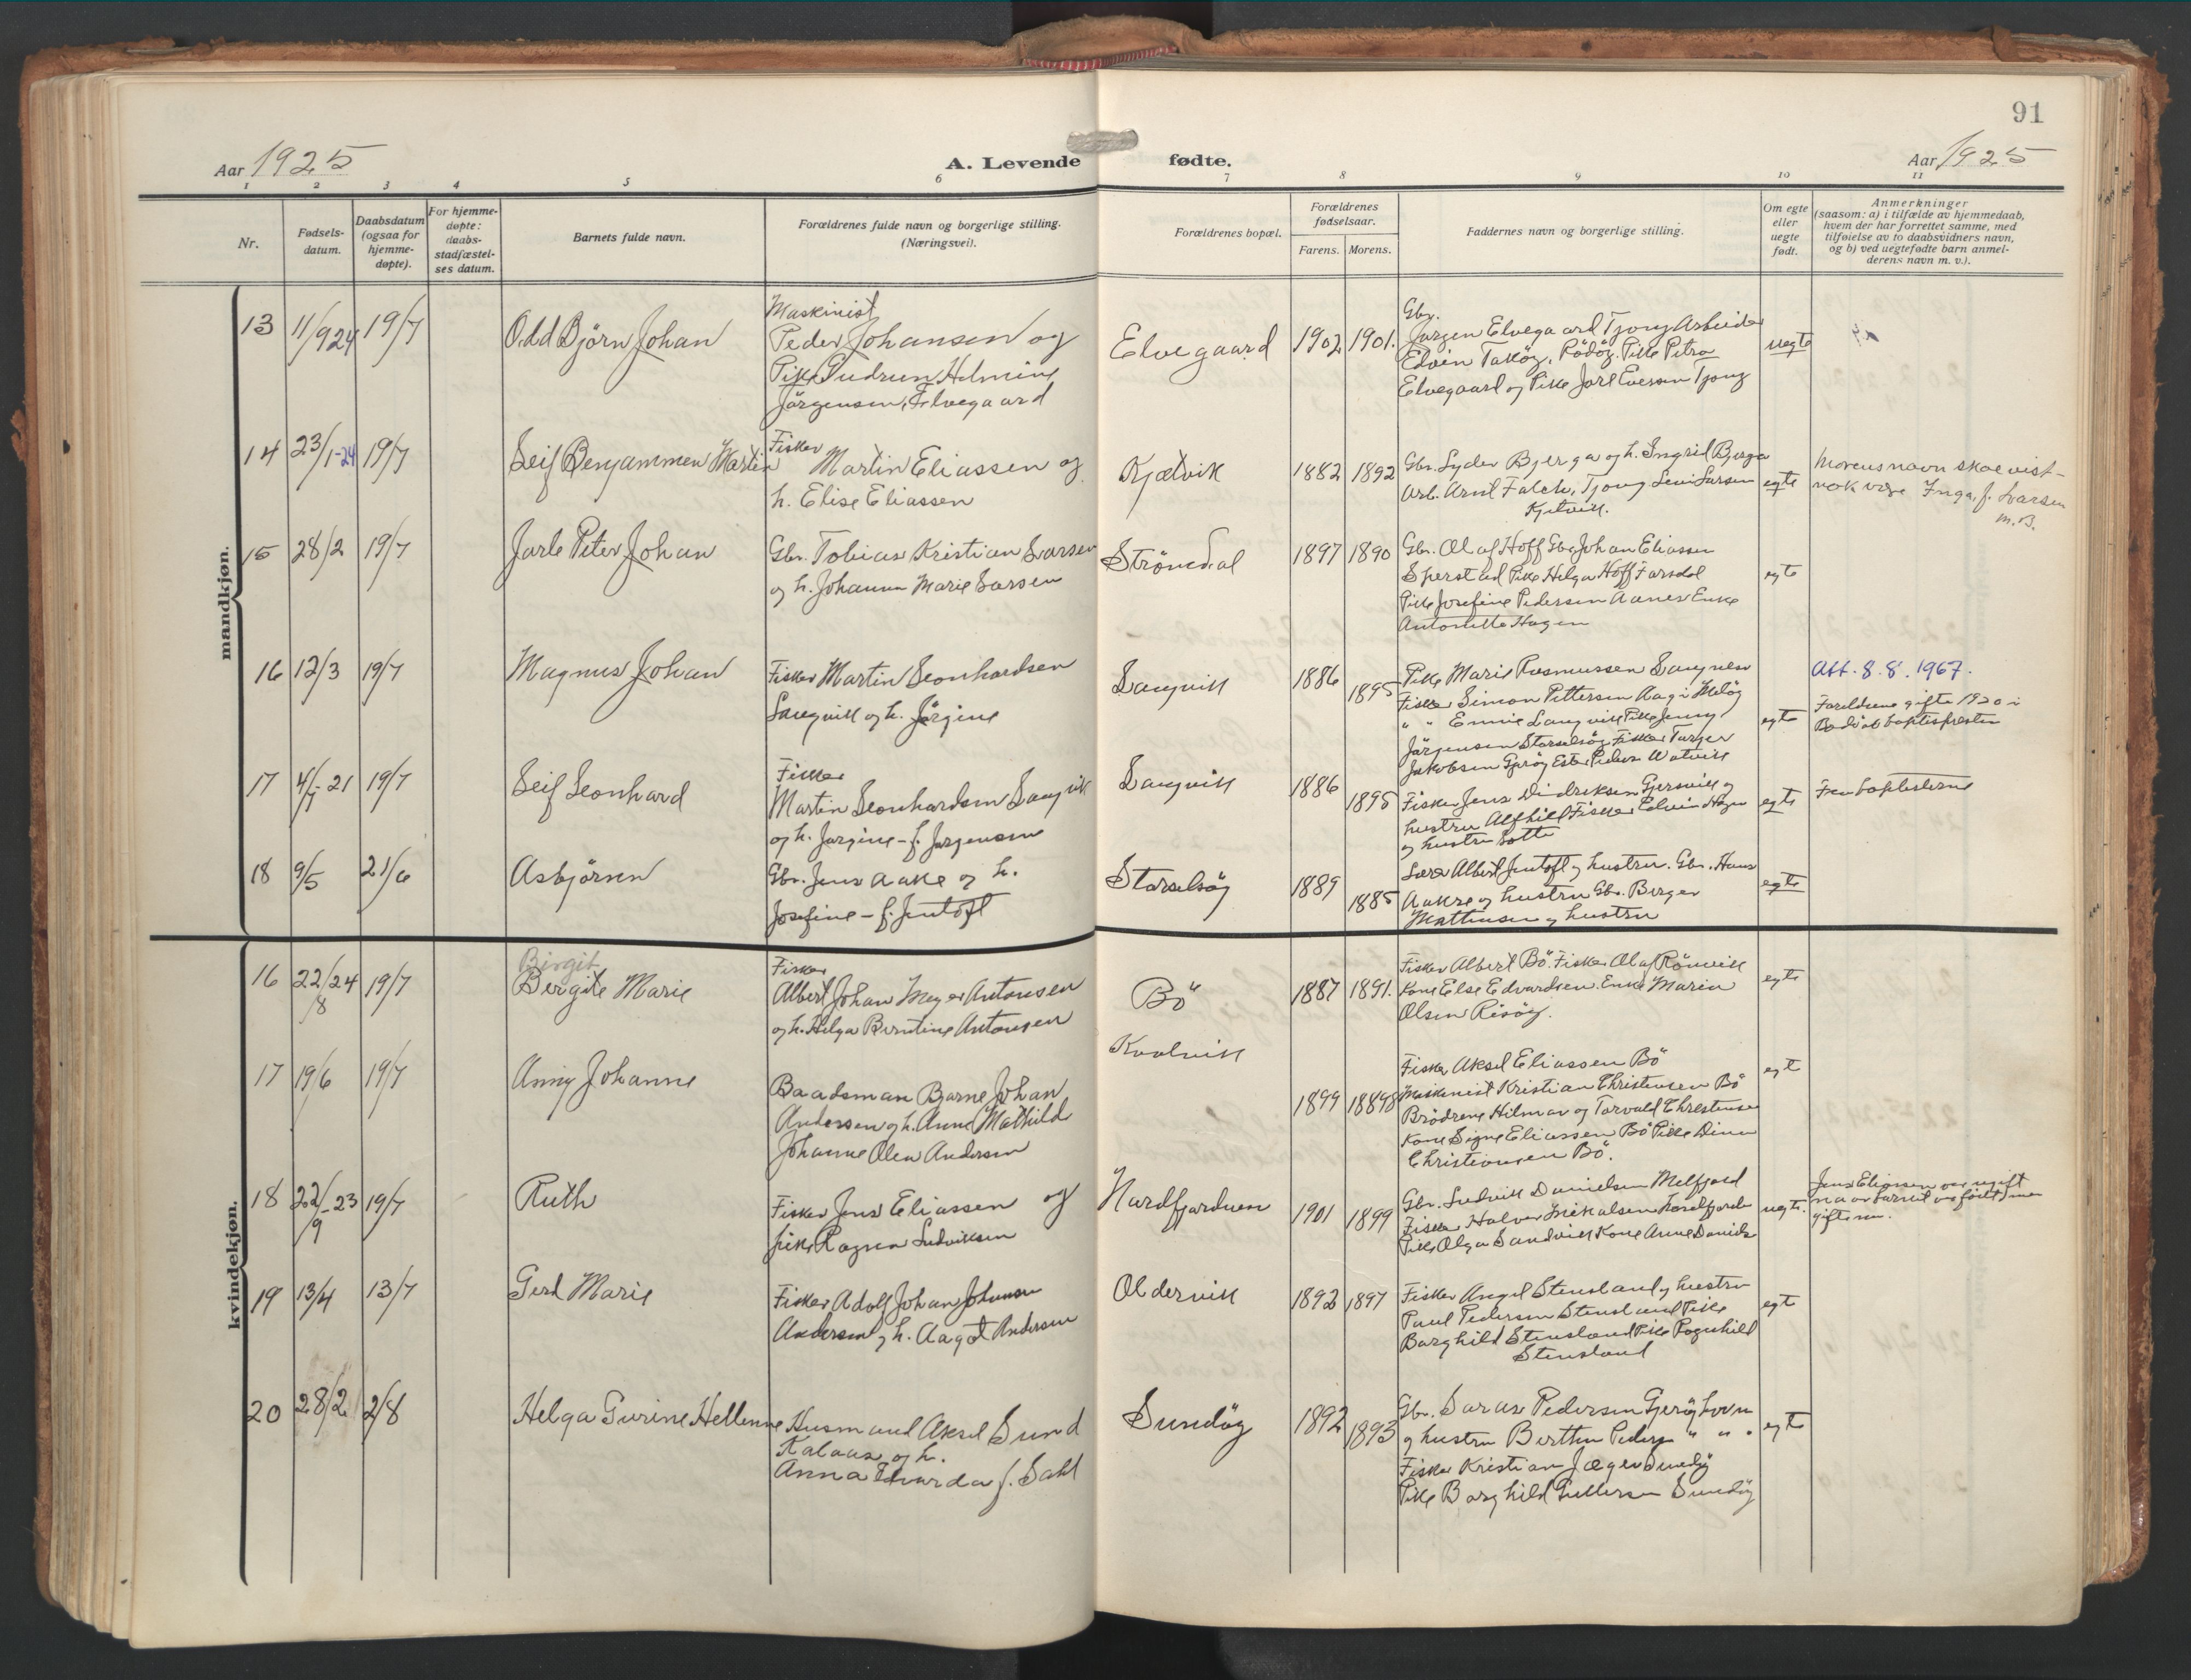 91
Aar 1925
A. Levende fødte.
Aar 1925
1 2 3 4 5 6 7 8 9 10 11
Nr.
Fødsels-
datum.
Daabsdatum
(ogsaa for
hjemme-
døpte).
For hjemme-
døpte:
daabs-
stadfæstel-
ses datum.
Barnets fulde navn.
Forældrenes fulde navn og borgerlige stilling.
(Næringsvei).
Forældrenes bopæl.
Forældrenes
fødselsaar.
Farens. Morens.
Faddernes navn og borgerlige stilling.
Om egte
eller
uegte
født.
Anmerkninger
(saasom: a) i tilfælde av hjemmedaab,
hvem der har forrettet samme, med
tilføielse av to daabsvidners navn,
og b) ved uegtefødte barn anmel-
derens navn m. v.).
mandkjøn.
13 11/9 24 19/7
Odd Bjørn Johan
Maskinist
Peder Johansen og
Pike Gudrun Helmine
Jörgensen, Elvegaard
Elvegaard
1902 1901.
Gbr.
Jørgen Elvegaard Tjong Arbeider
Edvin Taköy, Rödöy. Pike Petra
Elvegaard og Pike Jarl Eversen Tjong
uegte
14 23/1-24 19/7
Leif Benjammen Martin
Fisker
Martin Eliassen og
h. Elise Eliassen
Kjætvik
1882 1892
Gbr. Lyder Bjerga og h. Ingrid Bjerga
Arb. Arnt Falch, Tjong Levi Larsen
Kjetvik.
egte
Morens navn skal vist-
nok være Inga, f. Larsen
m.B.
15 28/2 19/7
Jarle Peter Johan
Gbr. Tobias Kristian Larsen
og h. Johanna Marie Larsen
Strömdal
1897 1890
Gbr. Olaf Hoff Gbr Johan Eliassen
Sperstad Pike Helga Hoff Farsdal
Pike Josefine Pedersen Aanes Enke
Antonette Hagen
egte
16 12/3 19/7
Magnus Johan
Fisker Martin Leonhardsen
Langvik og h. Jörgine
Langvik
1886 1895
Pike Marie Rasmussen Langnes
Fisker Simon Pettersen Aag i Melöy
" " Ennie Langvik Pike Jenny
Jörgensen Storselsöy Fisker Torger
Jakobsen Gjeröy Ester Peders Valvik
egte
Att. 8.8.1967.
Foreldrene gifte 1920 i
Bodö av baptistpresten
17 4/7-21 19/7
Leif Leonhard
Fisker
Martin Leonhardsen Langvik
og h. Jørgine - f. Jørgensen
Langvik
1886 1895
Fisker Jens Didriksen Gjersvik og
hustru Alfhild Fisker Edvin Hagen
og hustru Lotte
egte
Fra baptisterne
18 9/5 21/6
Asbjørn
Gbr. Jens Aakre og h.
Josefine - f. Jentoft
Storselsöy
1889 1885
Lærer Albert Jentoft og hustru. Gbr. Hans
Aakre og hustru Gbr. Berger
Mathisen og hustru
egte
kvindekjøn.
16 22/8 24 19/7
Birgit
Bergite Marie
Fisker
Albert Johan Meyer Antonsen
og h. Helga Berntine Antonsen
Bö
1887 1891.
Fisker Albert Bö. Fisker Olaf Rönvik
Kone Else Edvardsen. Enke Marin
Olsen Risöy.
egte
17 19/6 19/7
Anny Johanne
Baadsman Bjarne Johan
Andersen og h. Anne Mathild
Johanne Olea Andersen
Kvalvik
1899 18898
Fisker Aksel Eliassen Bö
Maskinist Kristian Christensen Bö
Brödrene Hilmar og Torvald Christensen
Kone Signe Eliassen Bö Pike Dina
Christiansen Bö.
egt
18 22/9-23 19/7
Ruth
Fisker Jens Eliassen og
pike Ragna Ludviksen
Nordfjorden
1901 1899
Gbr. Ludvik Danielsen Melfjord
Fisker Halvor Mikalsen Nordfjorden
Pike Olga Sandvik Kone Anne Daniels
uegte.
Jens Eliassen var ugift
naar barnet var født men
gift nu.
19 13/4 13/7
Gerd Marie
Fisker Adolf Johan Johansen
Andersen og h. Aagot Andersen
Oldervik
1892 1897
Fisker Angel Stensland og hustru
Paul Pedersen Stensland Pike
Borghild Stensland Pike Ragnhild
Stensland
egt
20 28/2 2/8
Helga Gurine Hellenne
Husmand Aksel Sund
Kalaas og h.
Anna Edvarda f. Dahl
Sundöy
1892 1893
Gbr. Saras Pedersen Gjeröy Lovn
og hustru Berthea Peders " " "
Fisker Kristian Jæger Sundöy
Pike Borghild Pettersen Sundöy
egt